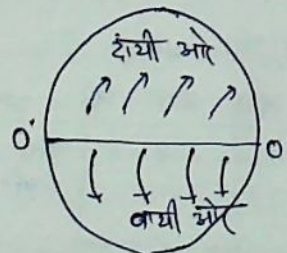 दांयी ओर
0° 0
बायी ओर